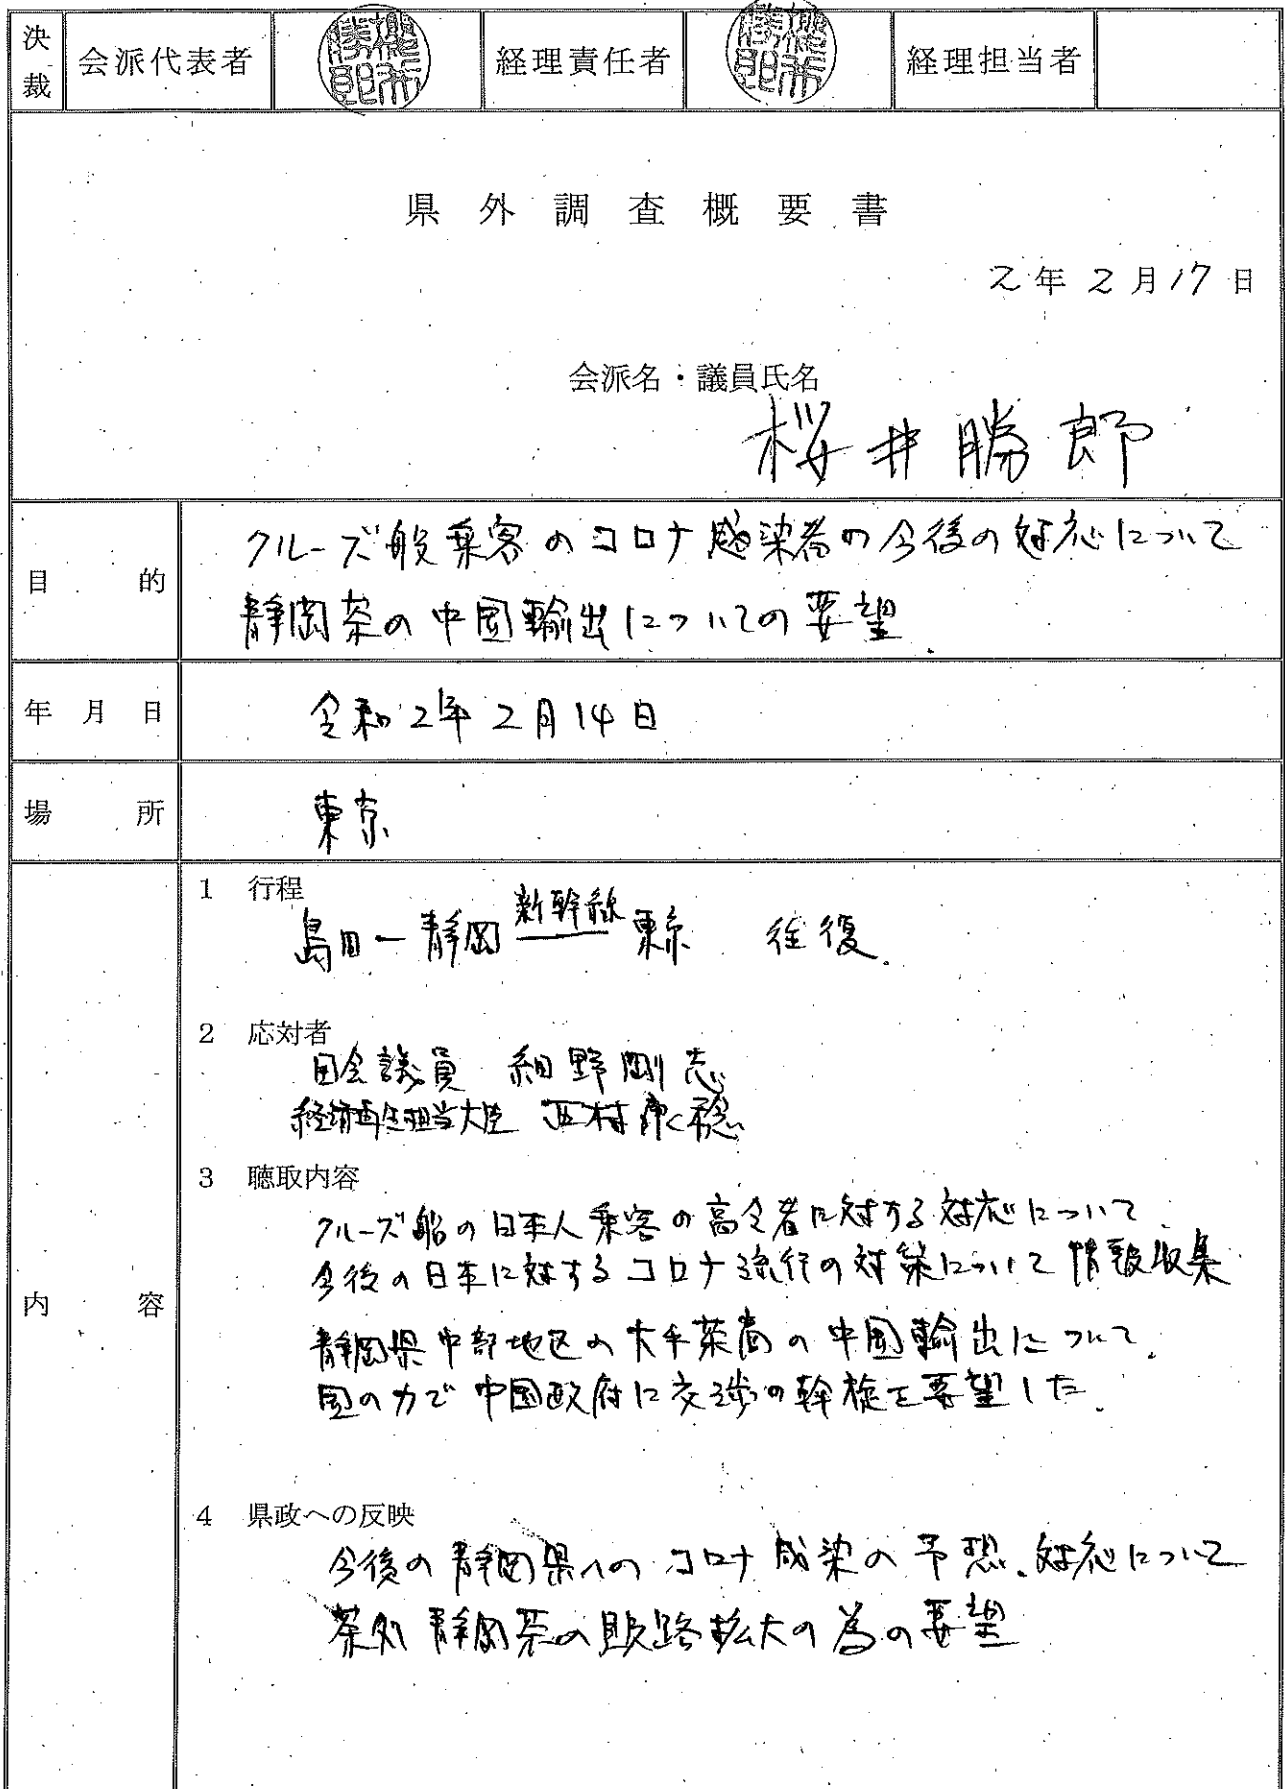 決裁 会派代表者 経理責任者 経理担当者
県外調査概要書
2年2月17日
会派名・議員氏名
桜井勝郎
目的 クルーズ船乗客のコロナ感染者の今後の対応について
静岡茶の中国輸出についての要望.
年月日 令和2年2月14日
場所 東京
内容
1 行程
島田ー静岡 新幹線 東京 往復.
2 応対者
国会議員 細野剛志
経済再生担当大臣 西村康稔
3 聴取内容
クルーズ船の日本人乗客の高令者に対する対応について.
今後の日本に対するコロナ流行の対策について情報収集
静岡県中部地区の大手茶商の中国輸出について.
国の力で中国政府に交渉の幹旋を要望した.
4 県政への反映
今後の静岡県へのコロナ感染の予想、対応について
茶処静岡茶の販路拡大の為の要望